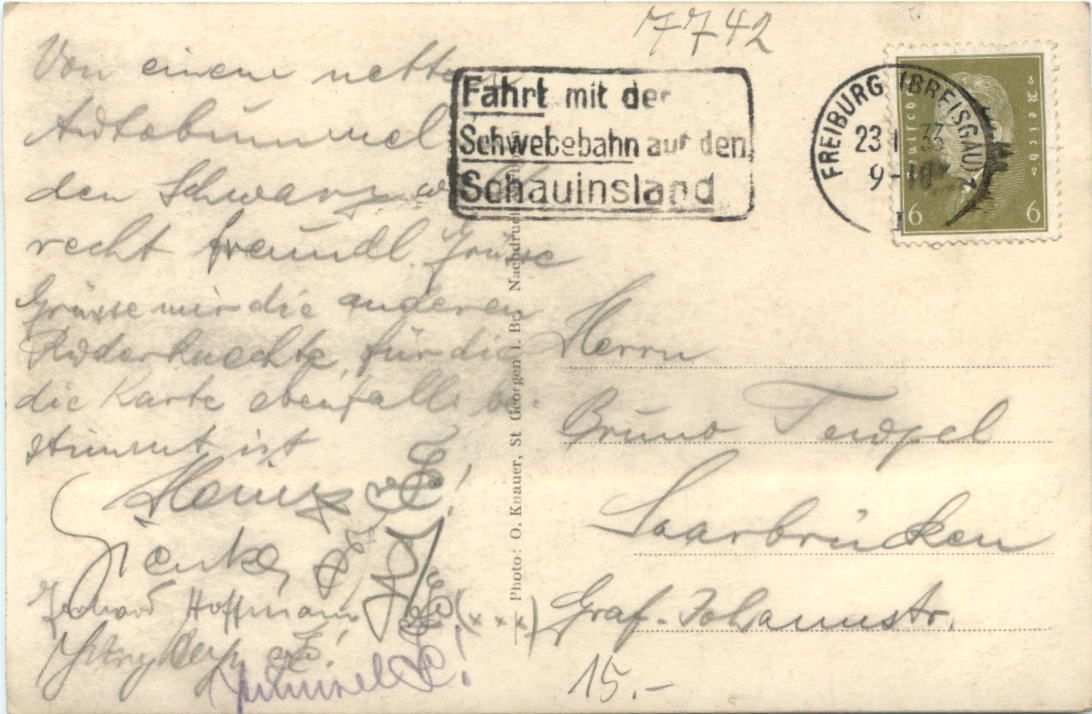 7742
Von einem nette
Autobummel
den Schwarzwald
recht freundl. Grüsse
Grüsse mir die anderen
Ruderknechte, für die
die Karte ebenfalls be-
stimmt ist
Heinz
Gerhard Hoffmann (xxx)
Fahrt mit der
Schwebebahn auf den
Schauinsland
FREIBURG (BREISGAU) 1
23 33
9-10
Deutsches Reich
6 6
Photo: O. Knauer, St Georgen i. Br. Nachdruck
Herrn
Bruno
Saarbrücken
Graf-Johannstr.
15.-